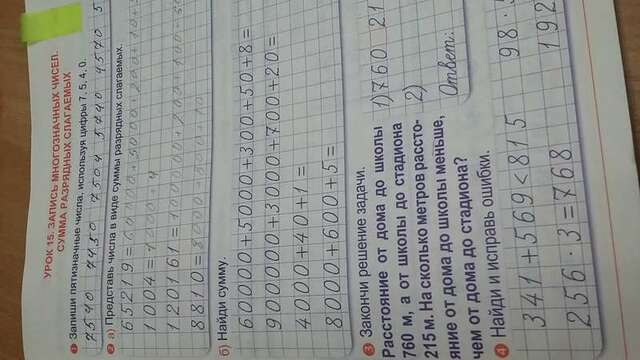 УРОК 15. ЗАПИСЬ МНОГОЗНАЧНЫХ ЧИСЕЛ.
СУММА РАЗРЯДНЫХ СЛАГАЕМЫХ
1 Запиши пятизначные числа, используя цифры 7, 5, 4, 0.
7540 7450 7504 5740 4570 5
2 а) Представь числа в виде суммы разрядных слагаемых.
65219 =
1004 =
120161 =
8810 =
б) Найди сумму.
60000+5000+300+50+8=
900000+3000+700+20=
4000+40+1=
8000+600+5=
3 Закончи решение задачи.
Расстояние от дома до школы
760 м, а от школы до стадиона
215 м. На сколько метров рассто-
яние от дома до школы меньше,
чем от дома до стадиона?
1) 760 21
2)
Ответ:
4 Найди и исправь ошибки.
341+569<815 98·
256·3=768 192